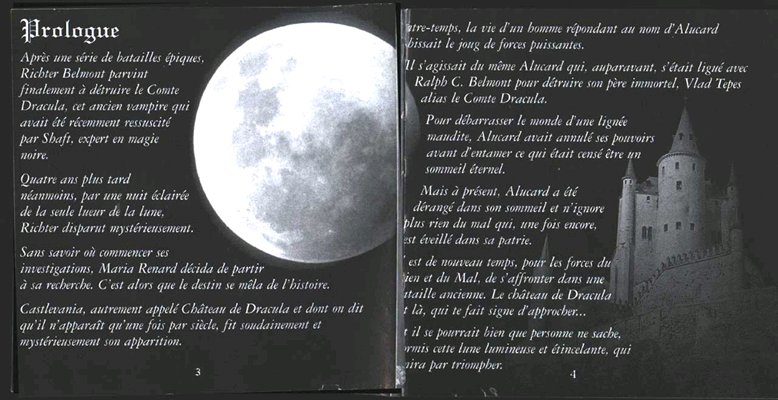 Prologue
Après une série de batailles épiques,
Richter Belmont parvint
finalement à détruire le Comte
Dracula, cet ancien vampire qui
avait été récemment ressuscité
par Shaft, expert en magie
noire.
Quatre ans plus tard
néanmoins, par une nuit éclairée
de la seule lueur de la lune,
Richter disparut mystérieusement.
Sans savoir où commencer ses
investigations, Maria Renard décida de partir
à sa recherche. C'est alors que le destin se mêla de l'histoire.
Castlevania, autrement appelé Château de Dracula et dont on dit
qu'il n'apparaît qu'une fois par siècle, fit soudainement et
mystérieusement son apparition.
3
tre-temps, la vie d'un homme répondant au nom d'Alucard
bissait le joug de forces puissantes.
Il s'agissait du même Alucard qui, auparavant, s'était ligué avec
Ralph C. Belmont pour détruire son père immortel, Vlad Tepes
alias le Comte Dracula.
Pour débarrasser le monde d'une lignée
maudite, Alucard avait annulé ses pouvoirs
avant d'entamer ce qui était censé être un
sommeil éternel.
Mais à présent, Alucard a été
dérangé dans son sommeil et n'ignore
plus rien du mal qui, une fois encore,
est éveillé dans sa patrie.
est de nouveau temps, pour les forces du
ien et du Mal, de s'affronter dans une
ataille ancienne. Le château de Dracula
t là, qui te fait signe d'approcher...
t il se pourrait bien que personne ne sache,
ormis cette lune lumineuse et étincelante, qui
nira par triompher.
4